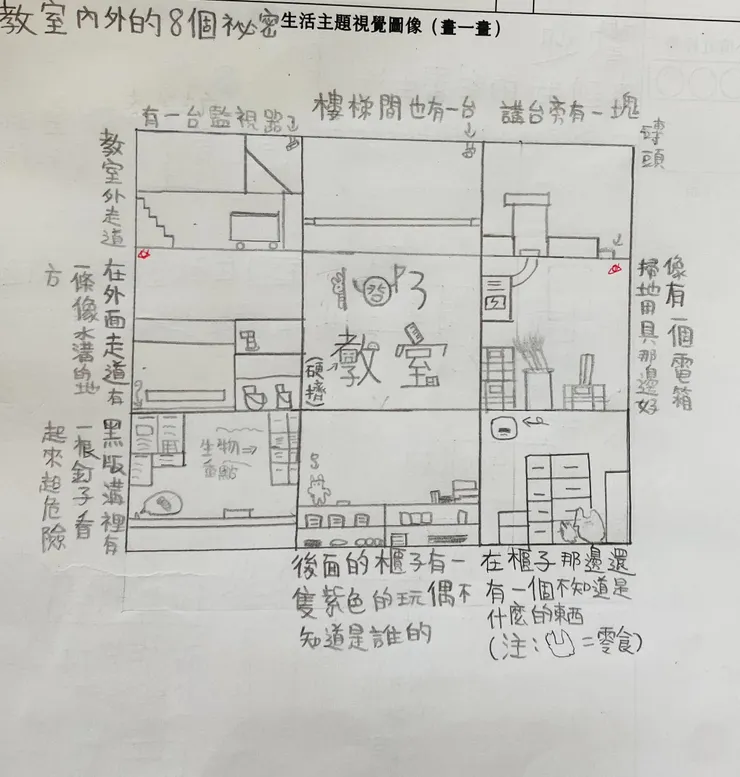 教室內外的8個祕密
生活主題視覺圖像（畫一畫）
教室外走道
有一台監視器
樓梯間也有一台
講台旁有一塊
磚頭
在外面走道有
一條像水溝的地
方
教室
(硬擠)
像有一個電箱
掃地用具那邊好
黑版溝裡有
一根釘子看
起來超危險
生物⇒
後面的櫃子有一
隻紫色的玩偶不
知道是誰的
在櫃子那邊還
有一個不知道是
什麼的東西
(注: =零食)